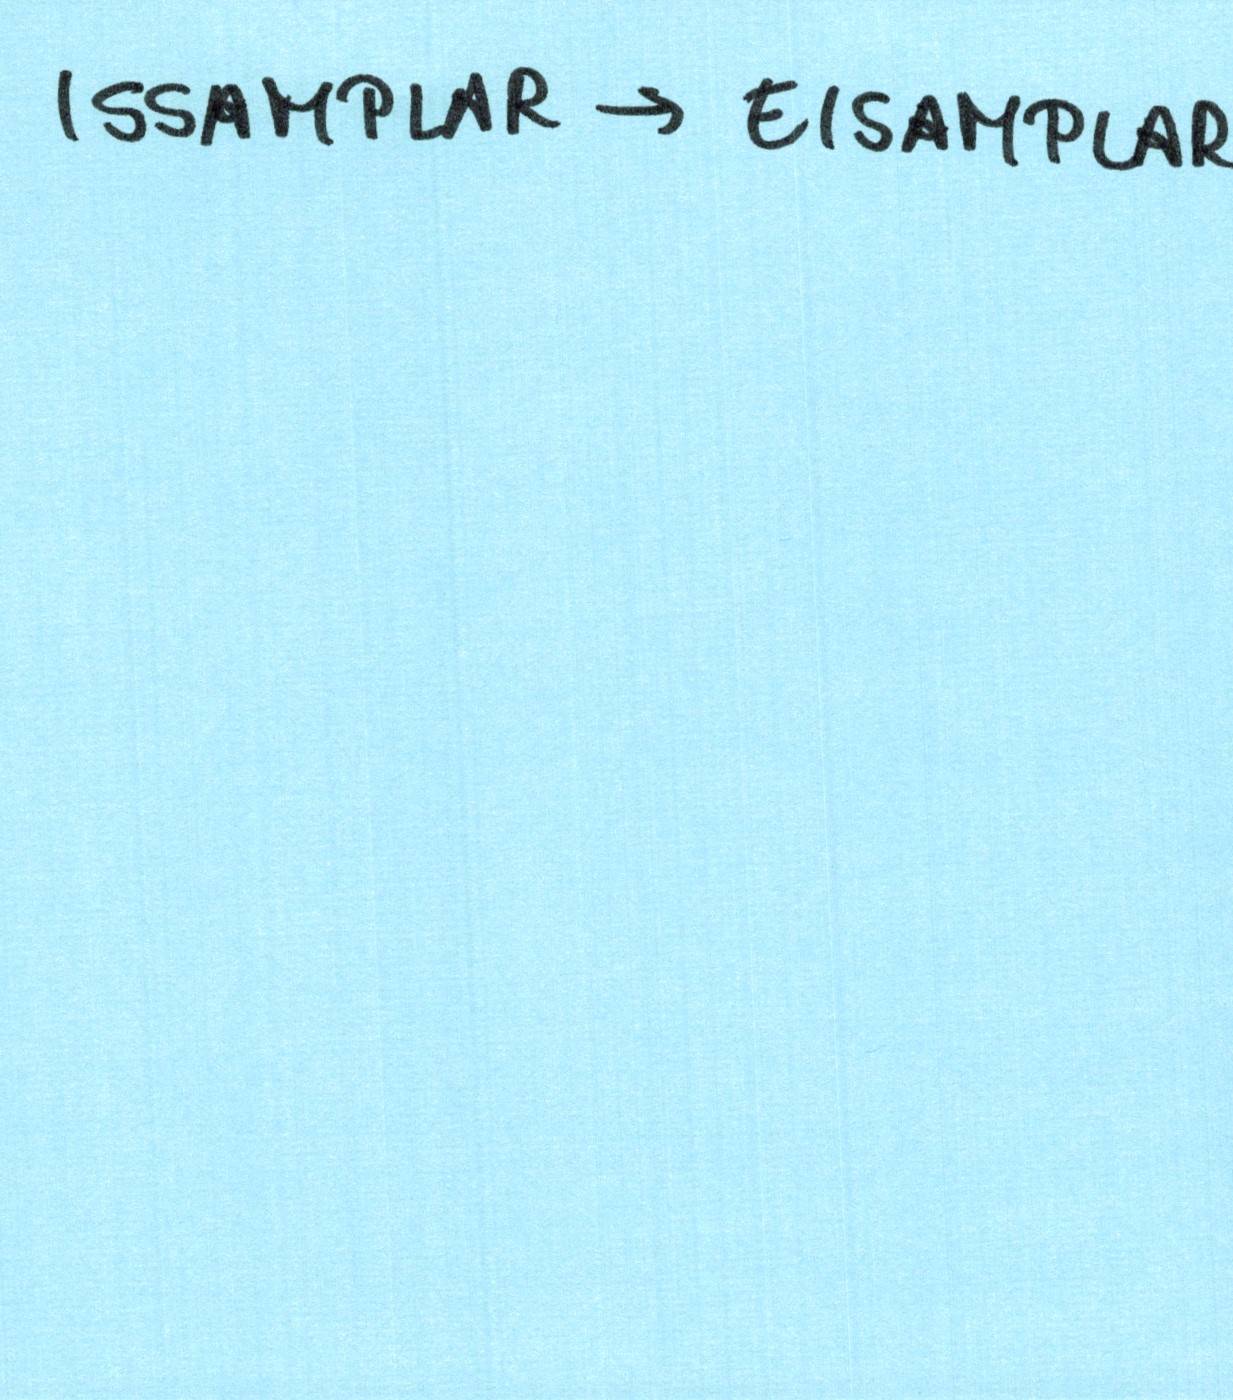 ISSAMPLAR → EISAMPLAR